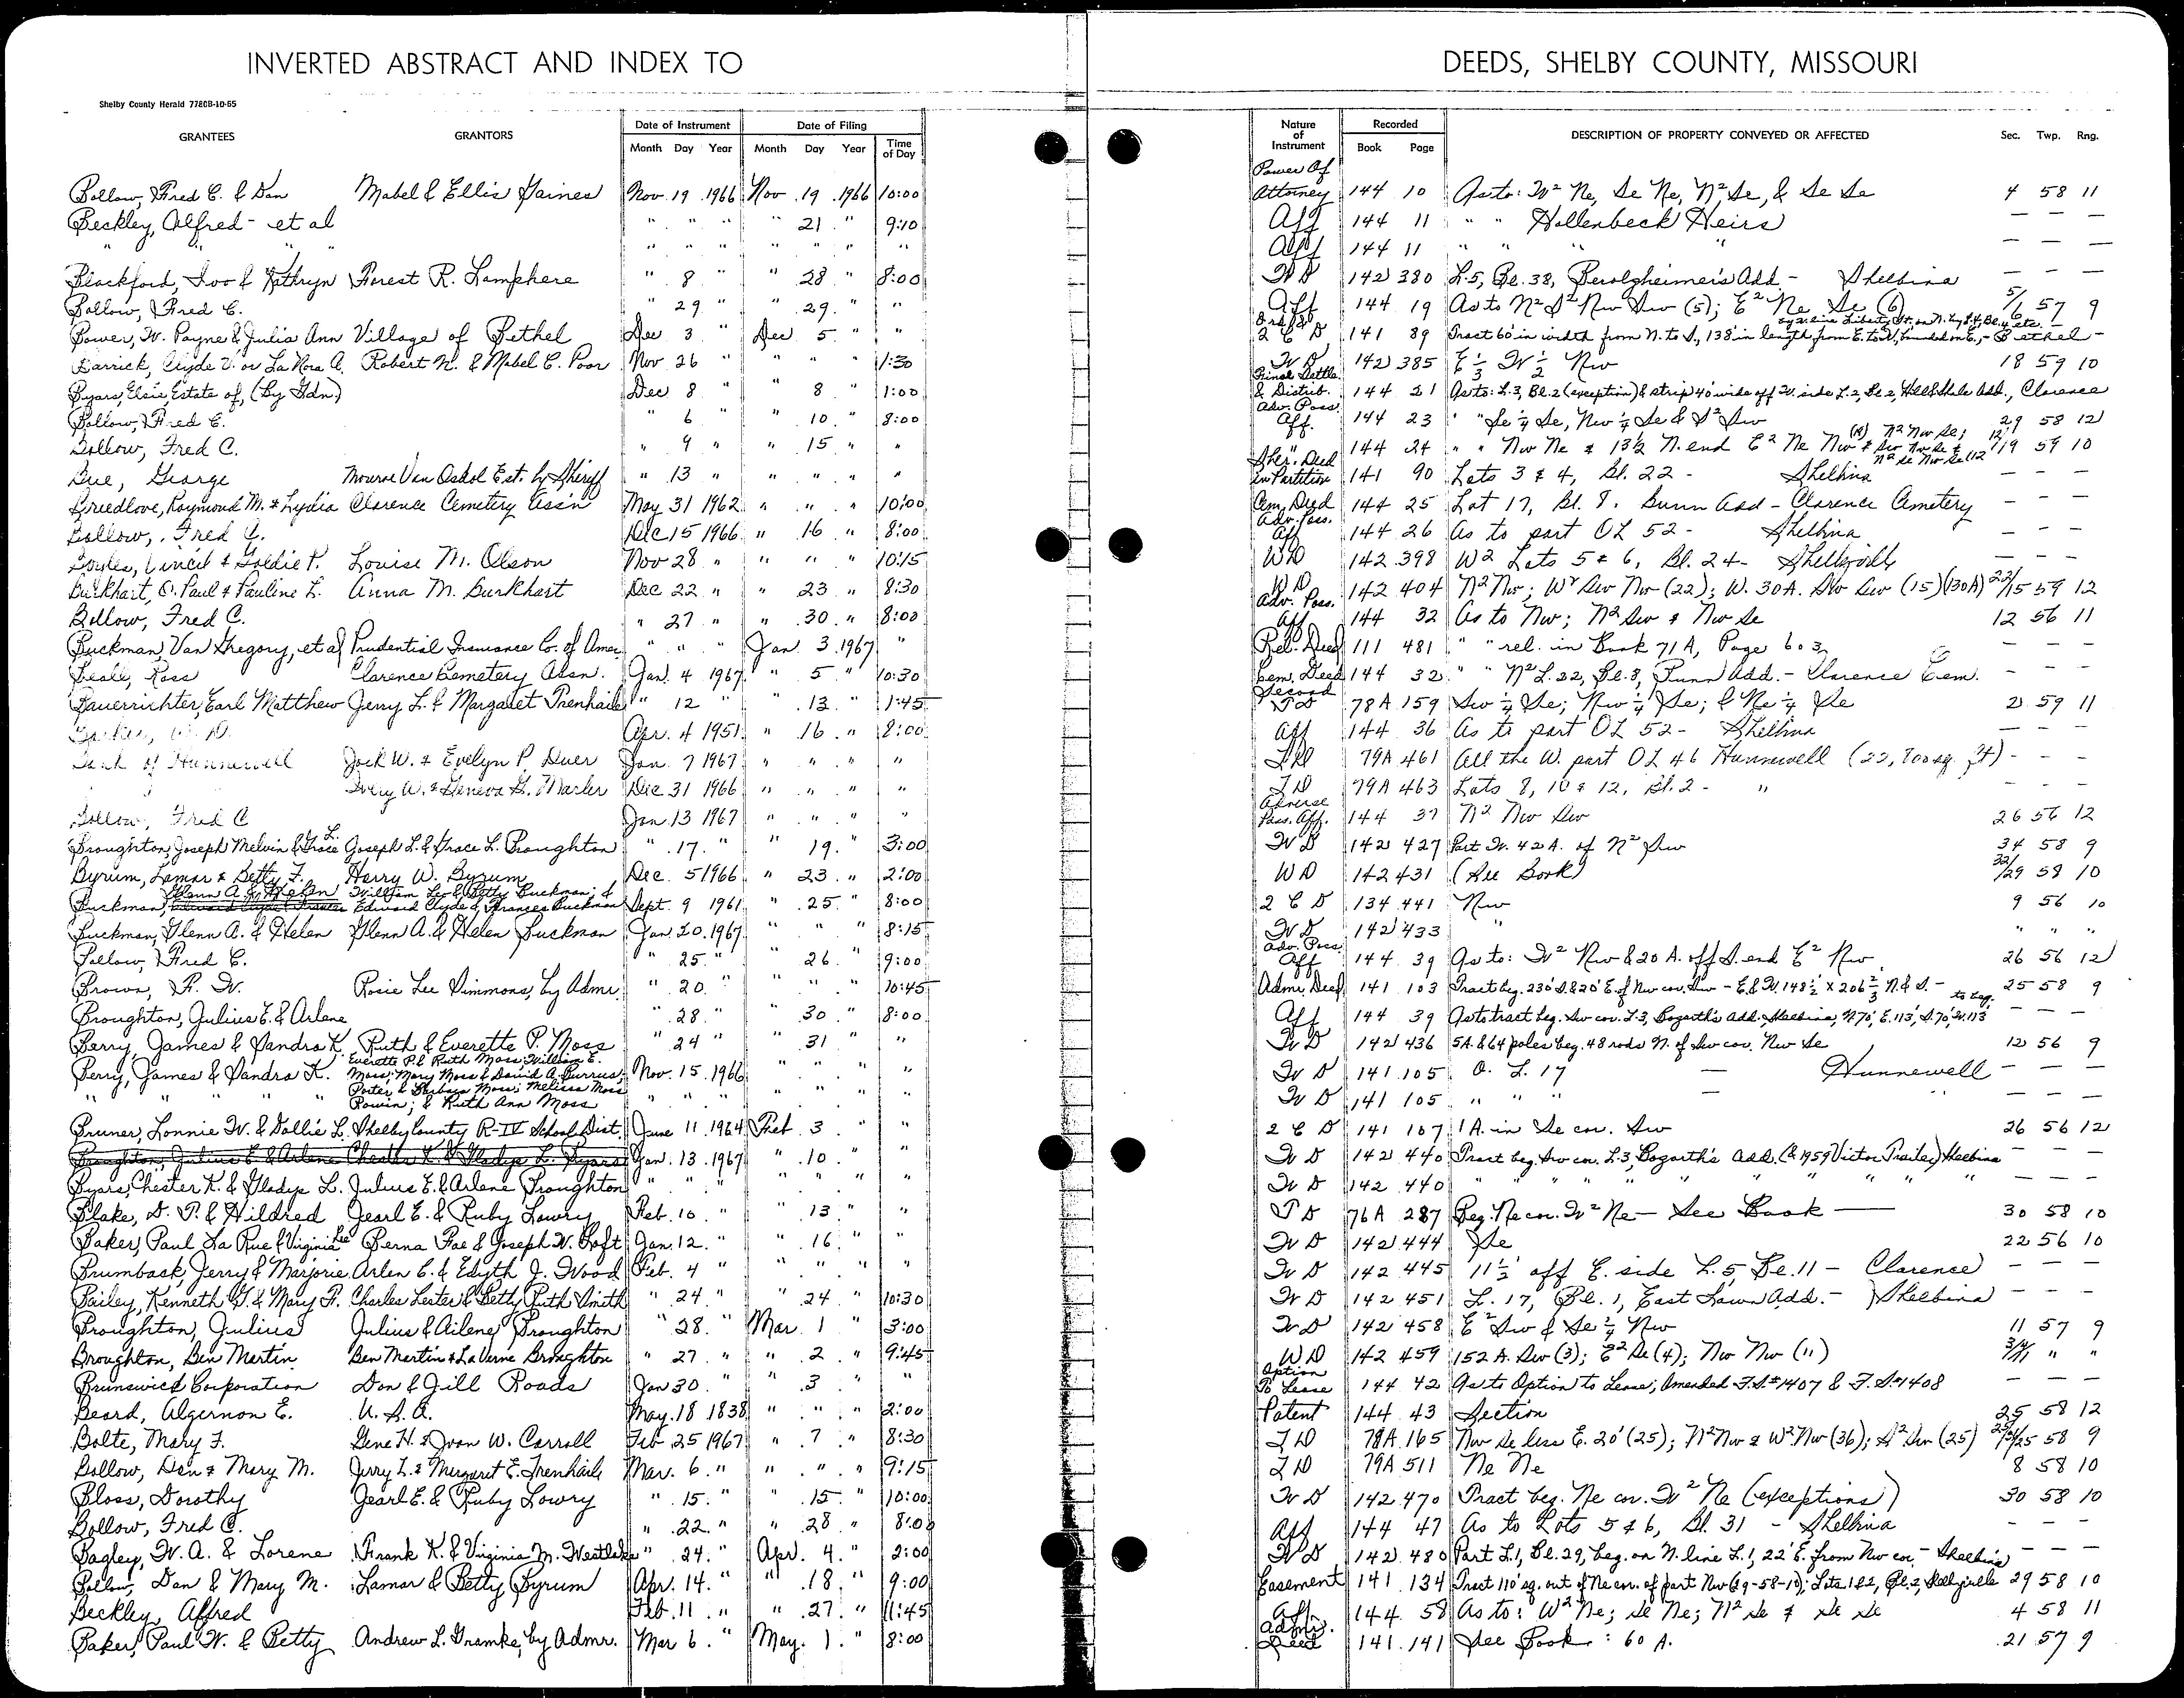 INVERTED ABSTRACT AND INDEX TO DEEDS, SHELBY COUNTY, MISSOURI
Shelby County Herald 7780B-10-65
GRANTEES GRANTORS Date of Instrument Date of Filing Nature of Instrument Recorded DESCRIPTION OF PROPERTY CONVEYED OR AFFECTED Sec. Twp. Rng.
Month Day Year Month Day Year Time of Day Book Page
Bollow, Fred C. & Dan Mabel & Ellis Gaines Nov. 19 1966 Nov. 19 1966 10:00 Power Of Attorney 144 10 As to: W² Ne, Se Ne, N² Se, & Se Se 4 58 11
Beckley, Alfred - et al " " " " 21 " 9:10 Aff 144 11 " " Hollenbeck Heirs — — —
" " " " " " " " " Aff 144 11 " " " — — —
Blackford, Ivo & Kathryn Forest R. Lamphere " 8 " " 28 " 8:00 W D 142 380 L. 5, Bl. 38, Berolgheimer's Add - Shelbina — — —
Bollow, Fred C. " 29 " " 29 " " Aff 144 19 As to N² S² Nw Sw (5); E² Ne Se (6) 5/6 57 9
Bower, W. Payne & Julia Ann Village of Bethel Dec 3 " Dec 5 " " 2 C D 141 89 Tract 60' in width from N. to S., 138' in length from E. to W., bounded on E., - Bethel -
Barrick, Clyde V. or La Nora A. Robert N. & Mabel C. Poor Nov 26 " " " " 1:30 W D 142 385 E ⅓ W ½ Nw 18 59 10
Byars, Elsie Estate of, (By Gdn.) Dec 8 " " 8 " 1:00 Final Settle. & Distrib. 144 21 As to: L. 3, Bl. 2 (exception) & strip 40' wide off W. side L. 2, Bl. 2, Add., Clarence
Bollow, Fred C. " 6 " " 10 " 8:00 Adv. Poss. Aff. 144 23 " " Se ¼ Se, Nw ¼ Se & S² Sw 29 58 12
Bollow, Fred C. " 9 " " 15 " " 144 24 " " Nw Ne & 13½ N. end E² Ne Nw 12/19 59 10
Bue, George Est. by Sheriff " 13 " " " " " Sher. Deed in Partition 141 90 Lots 3 & 4, Bl. 22 - Shelbina — — —
Breedlove, Raymond M. & Lydia Clarence Cemetery Ass'n May 31 1962 " " " 10:00 Cem. Deed 144 25 Lot 17, Bl. 8, Bunn Add - Clarence Cemetery — — —
Bollow, Fred C. Dec 15 1966 " 16 " 8:00 Adv. Poss. Aff 144 26 As to part OL 52 - Shelbina — — —
& Goldie P. Louise M. Olson Nov 28 " " " " 10:15 WD 142 398 W² Lots 5 & 6, Bl. 24 - Shelbyville — — —
Burkhart, O. Paul & Pauline L. Anna M. Burkhart Dec 22 " " 23 " 8:30 WD 142 404 N² Nw; W² Sw Nw (22); W. 30A. Sw Sw (15) (130A) 22/15 59 12
Bollow, Fred C. " 27 " " 30 " 8:00 Adv. Poss. Aff 144 32 As to Nw; N² Sw & Nw Se 12 56 11
Buckman, Van Gregory, et al Prudential Insurance Co. of Amer. " " " Jan. 3 1967 " Rel. Deed 111 481 " " rel. in Book 71A, Page 603 — — —
Beall, Ross Clarence Cemetery Assn. Jan. 4 1967 " 5 " 10:30 Cem. Deed 144 32 " " N² L. 22, Bl. 8, Bunn Add. - Clarence Cem. — — —
Bauerrichter, Earl Matthew Jerry L. & Margaret Trenhaile " 12 " 13 " 1:45 Second T D 78A 159 Sw ¼ Se; Nw ¼ Se; & Ne ¼ Se 2 59 11
Apr. 4 1951 " 16 " 8:00 Aff 144 36 As to part OL 52 - Shelbina — — —
Bank of Hunnewell Jack W. & Evelyn P. Duer Jan. 7 1967 " " " " T D 79A 461 All the W. part OL 46 Hunnewell (22,800 sq. ft) — — —
Ivery W. & Geneva G. Masler Dec 31 1966 " " " " T D 79A 463 Lots 8, 10 & 12, Bl. 2 - " — — —
Bollow, Fred C Jan. 13 1967 " " " " Adverse Poss. Aff. 144 37 N² Nw Sw 26 56 12
Broughton, Joseph Melvin & Grace L. Joseph L. & Grace L. Broughton " 17 " " 19 " 3:00 W D 142 427 Part W. 42 A. of N² Sw 34 58 9
Byrum, Lamar & Betty F. Harry W. Byrum Dec. 5 1966 " 23 " 2:00 WD 142 431 (See Book) 32/29 58 10
Buckman, Glenn A. & Helen William L. & Betty Buckman; & Edward Clyde & Frances Buckman Sept. 9 1961 " 25 " 8:00 2 C D 134 441 Nw 9 56 10
Buckman, Glenn A. & Helen Glenn A. & Helen Buckman Jan. 20 1967 " " " 8:15 W D 142 433 " " " "
Bollow, Fred C. " 25 " " 26 " 9:00 Adv. Poss Aff 144 39 As to: W² Nw & 20 A. off S. end E² Nw 26 56 12
Brown, F. W. Rosie Lee Simmons, by Admr. " 20 " " " " 10:45 Admr. Deed 141 103 Tract beg. 230' S. & 20' E. of Nw cor. Sw - E. & W. 148½ X 206⅔ N. & S. - 25 58 9
Broughton, Julius E. & Arlene " 28 " " 30 " 8:00 Aff 144 39 As to tract beg. Sw cor. L. 3, Bogarth's Add. Shelbina, N. 70', E. 113', S. 70', W. 113' to beg. — — —
Berry, James & Sandra K. Ruth & Everette P. Moss " 24 " " 31 " " W D 142 436 5A. & 64 poles beg. 48 rods N. of Sw cor. Nw Se 12 56 9
Berry, James & Sandra K. Everette P. & Ruth Moss; William E. Moss; Mary Moss & David A. Burrus; Nov. 15 1966 " " " " W D 141 105 O. L. 17 — Hunnewell — — —
" " " " Porter & Barbara Moss; Melissa Moss Bowen; & Ruth Ann Moss " " " " " " " W D 141 105 " " " — " — — —
Bruner, Lonnie W. & Dollie L. Shelby County R-IV School Dist. June 11 1964 Feb. 3 " " 2 C D 141 107 1A. in Se cor. Sw 26 56 12
Broughton, Julius E. & Arlene Chester K. & Gladys L. Byars Jan. 13 1967 " 10 " " W D 142 440 Tract beg. Sw cor. L. 3, Bogarth's Add. (& 1959 Victor Trailer) Shelbina — — —
Byars, Chester K. & Gladys L. Julius E. & Arlene Broughton " " " " " " " W D 142 440 " " " " " " " — — —
Blake, D. P. & Hildred Jearl E. & Ruby Lowry Feb. 10 " " 13 " " T D 76A 287 Beg. Ne cor. W² Ne — See Book — 30 58 10
Baker, Paul La Rue & Virginia Lee Berna Fae & Joseph W. Croft Jan. 12 " " 16 " " W D 142 444 Se 22 56 10
Brumback, Jerry & Marjorie Arlen C. & Edyth J. Wood Feb. 4 " " " " " W D 142 445 11½' off E. side L. 5, Bl. 11 - Clarence — — —
Bailey, Kenneth G. & Mary F. Charles Lester & Betty Ruth Smith " 24 " " 24 " 10:30 W D 142 451 L. 17, Bl. 1, East Lawn Add. - Shelbina — — —
Broughton, Julius Julius & Ailene Broughton " 28 " Mar. 1 " 3:00 W D 142 458 E² Sw & Se ¼ Nw 11 57 9
Broughton, Ben Martin Ben Martin & LaVerne Broughton " 27 " " 2 " 9:45 WD 142 459 152 A. Sw (3); E² Se (4); Nw Nw (11) 3/4/11 " "
Brunswick Corporation Don & Jill Roads Jan 30 " " 3 " " Option To Lease 144 42 As to Option to Lease; Amended F.S. #1407 & F.S. #1408 — — —
Beard, Algernon E. U. S. A. May. 18 1838 " " " 2:00 Patent 144 43 Section 25 58 12
Bolte, Mary F. Gene H. & Joan W. Carroll Feb 25 1967 " 7 " 8:30 T D 78A 165 Nw Se less E. 20' (25); N² Nw & W² Nw (36); S² Sw (25) 58 9
Bollow, Dan & Mary M. Jerry L. & Margaret E. Trenhaile Mar. 6 " " " " 9:15 T D 79A 511 Ne Ne 8 58 10
Bloss, Dorothy Jearl E. & Ruby Lowry " 15 " " 15 " 10:00 W D 142 470 Tract beg. Ne cor. W² Ne (exceptions) 30 58 10
Bollow, Fred C. " 22 " " 28 " 8:00 Aff 144 47 As to Lots 5 & 6, Bl. 31 - Shelbina — — —
Bagley, W. A. & Lorene Frank K. & Virginia M. Westlake " 24 " Apr. 4 " 2:00 W D 142 480 Part L. 1, Bl. 29, beg. on N. line L. 1, 22' E. from Nw cor. - Shelbina — — —
Bollow, Dan & Mary M. Lamar & Betty Byrum Apr. 14 " " 18 " 9:00 Easement 141 134 Tract 110' sq. out of Ne cor. of part Nw (29-58-10); Lots 1 & 2, Bl. 2, Shelbyville 29 58 10
Beckley, Alfred Feb. 11 " " 27 " 11:45 Aff. 144 58 As to: W² Ne; Se Ne; N² Se & Se Se 4 58 11
Baker, Paul W. & Betty Andrew L. Gramke, by Admr. Mar 6 " May. 1 " 8:00 Admr. Deed 141 141 See Book : 60 A. 21 57 9